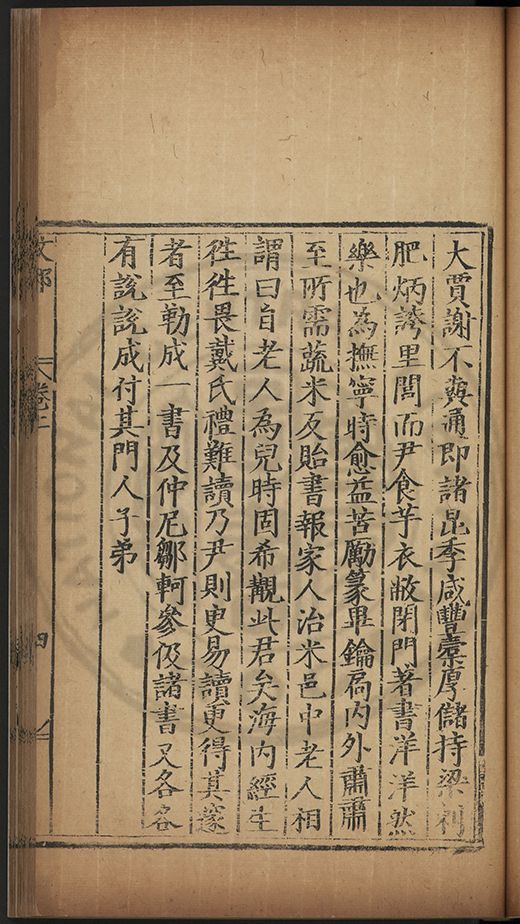 大賈謝不冀通即諸昆季咸豐橐厚儲持梁刺
肥炳誇里閭而尹食芋衣敝閉門著書洋洋然
樂也為撫寧時愈益苦勵篆畢鑰扃内外肅肅
至所需蔬米反貽書報家人治米邑中老人相
謂曰自老人為兒時固希覯此君矣海内經生
徃徃畏戴氏禮難讀乃尹則更易讀更得其邃
者至勒成一書及仲尼鄒軻參伋諸書又各各
有說說成付其門人子弟
卷二
四